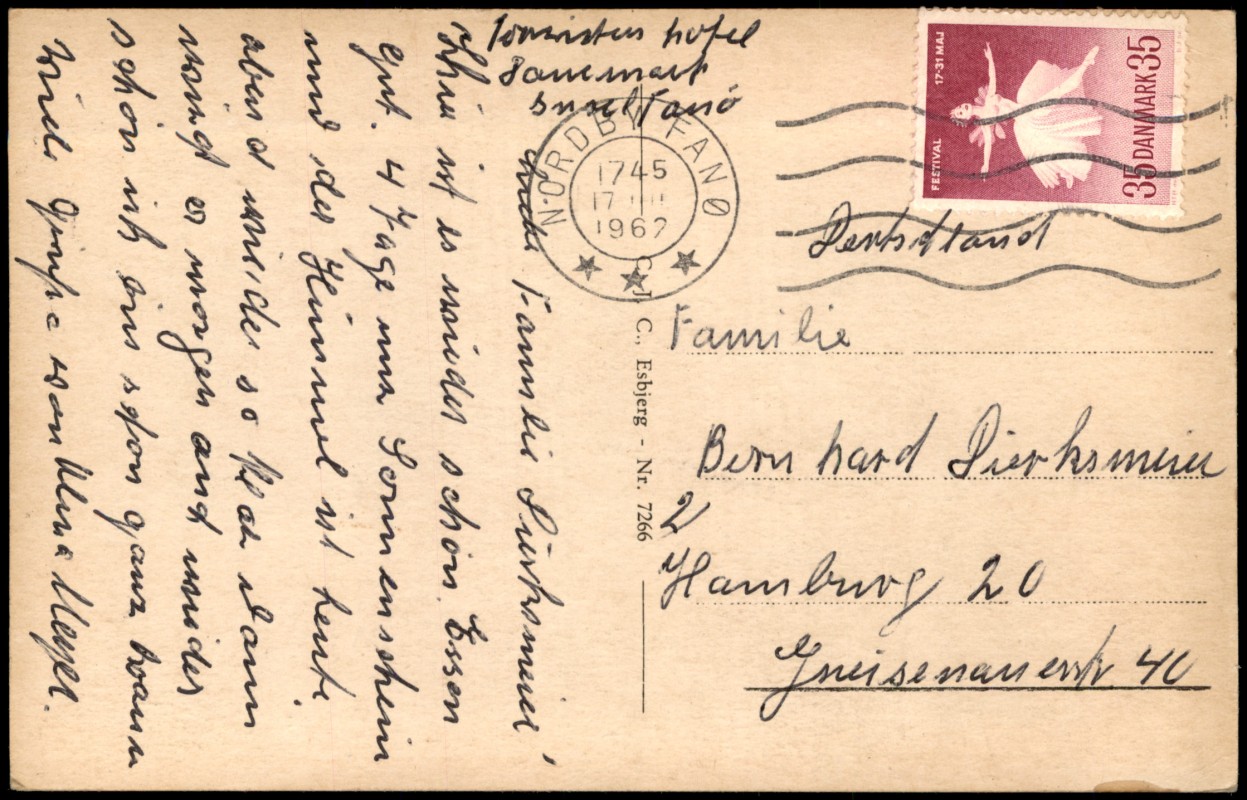 Touristen hotel
Dänemark
Insel Fanö
Liebe Familie Dierksmeier
Hier ist es wieder schön. Essen
gut. 4 Tage nur Sonnenschein
und der Himmel ist heute
abend wieder so klar dann
wird es morgen auch wieder
schön ich bin schon ganz braun
Viele Grüße von
NORDBY FANØ
1745
17
1962
C. J. C., Esbjerg - Nr. 7266
FESTIVAL 17-31 MAJ
35 DANMARK 35
Deutschland
Familie
Bernhard Dierksmeier
2
Hamburg 20
Gneisenaustr. 40